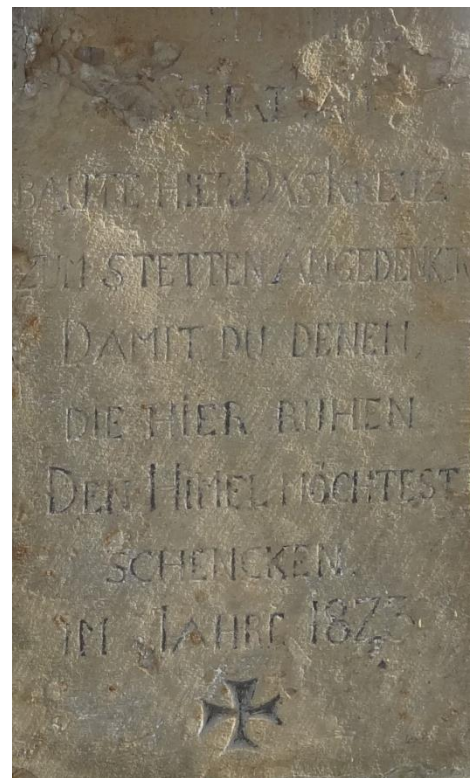 BAUTE HIER DAS KREUZ
ZUM STETTEN ANGEDENKEN
DAMIT DU DENEN,
DIE HIER RUHEN
DEN HIMEL MÖCHTEST
SCHENCKEN.
IM JAHRE 1873